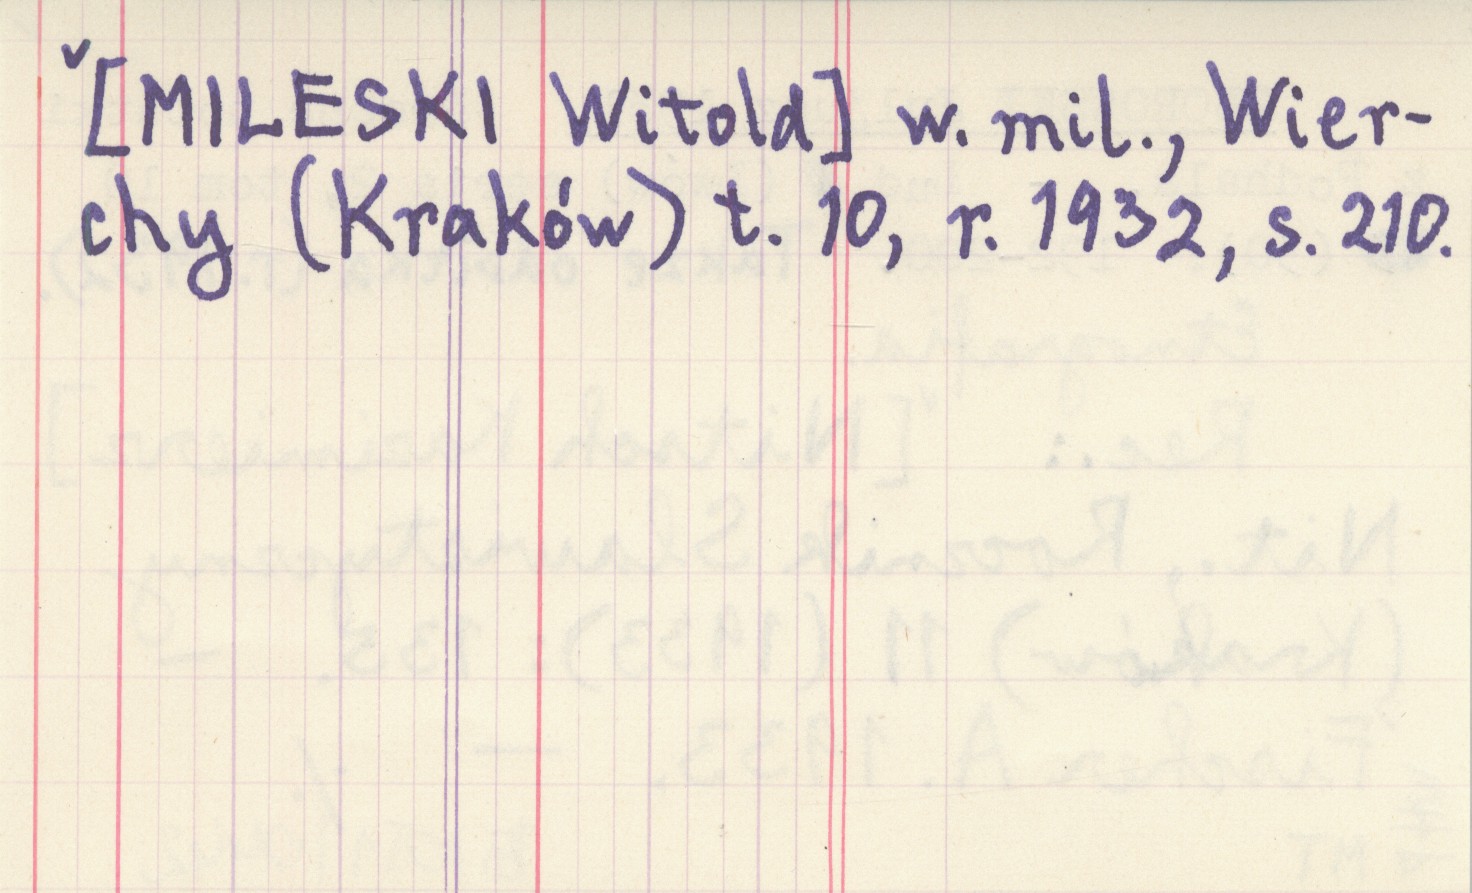 ˇ[MILESKI Witold] w. mil., Wier-
chy (Kraków) t. 10, r. 1932, s. 210.